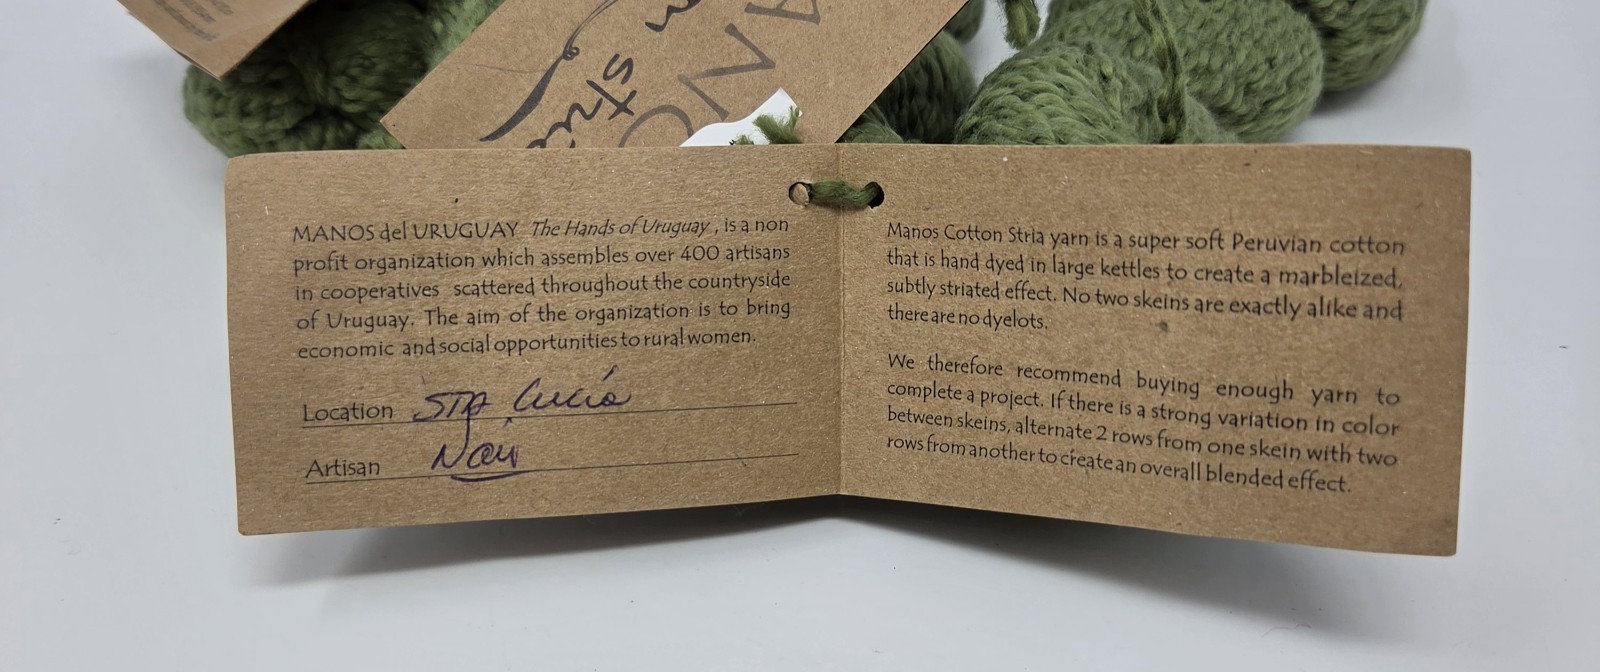 MANOS del URUGUAY The Hands of Uruguay, is a non
profit organization which assembles over 400 artisans
in cooperatives scattered throughout the countryside
of Uruguay. The aim of the organization is to bring
economic and social opportunities to rural women.
Location STA Lucía
Artisan
Manos Cotton Stria yarn is a super soft Peruvian cotton
that is hand dyed in large kettles to create a marbleized,
subtly striated effect. No two skeins are exactly alike and
there are no dyelots.
We therefore recommend buying enough yarn to
complete a project. If there is a strong variation in color
between skeins, alternate 2 rows from one skein with two
rows from another to create an overall blended effect.